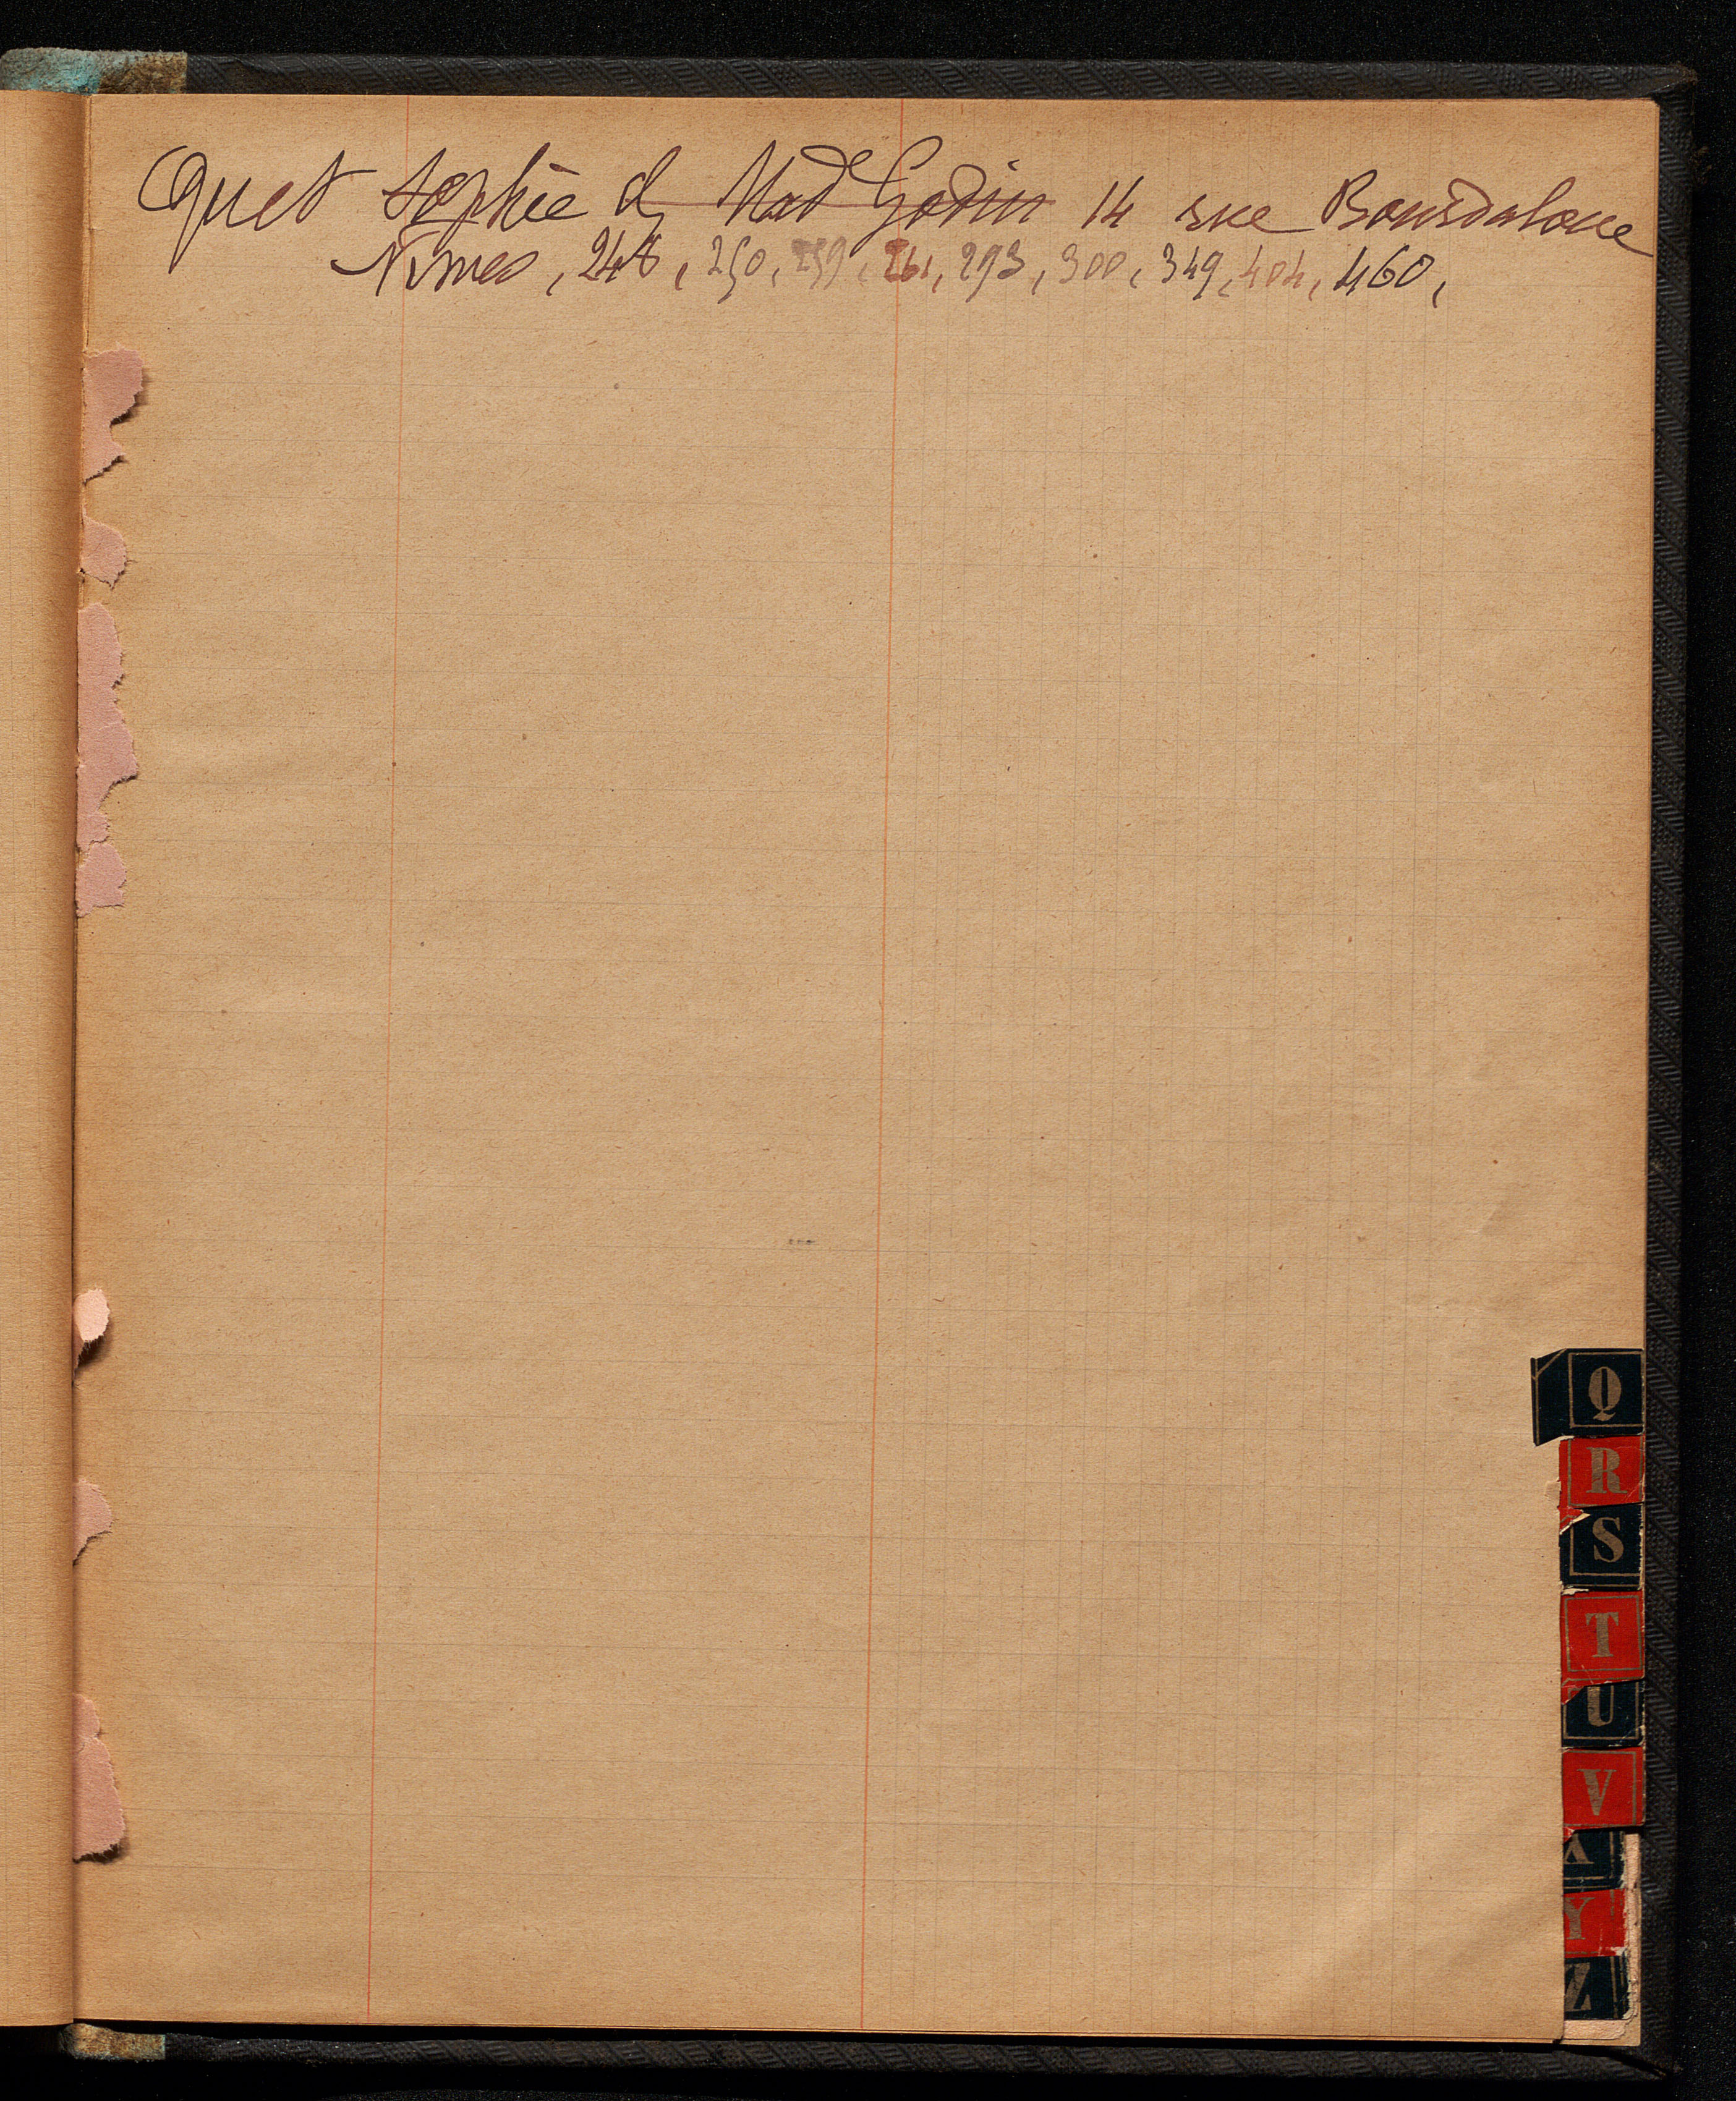 Quet Sophie ch Mad Godin 14 rue Bourdaloue
Nimes, 248, 250, 259, 261, 293, 300, 349, 404, 460,
Q
R
S
T
U
V
X
Y
Z